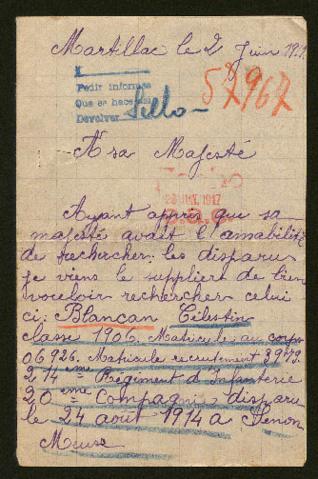 Martillac le 2 Juin 191
Pedir informes
Que se hace del
Devolver Sello
57967
A sa Majesté
1917
Ayant appris que sa
majesté avait l'amabilité
de rechercher les disparu
je viens le suppliert de bien
vouloir rechercher celui
ci: Blancan Célestin
classe 1906. Matricule au corps
06926. Maticule recrutement
214eme Régiment d'Infanterie
20eme Compagnie disparu
le 24 août 1914 a Stenon
Meuse